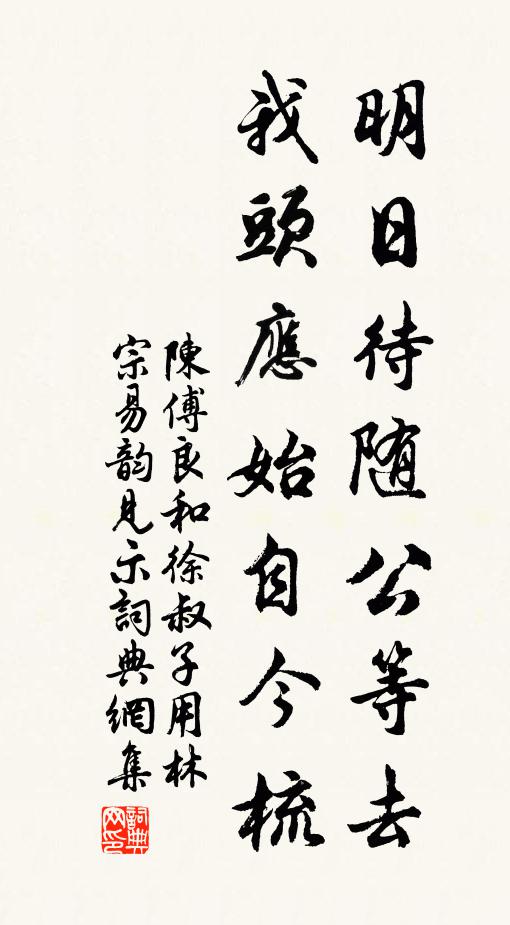 明日待随公等去
我頭應始自今梳
陳傅良和徐叔子用林
宗易韵見示詞典網集
詞典网印